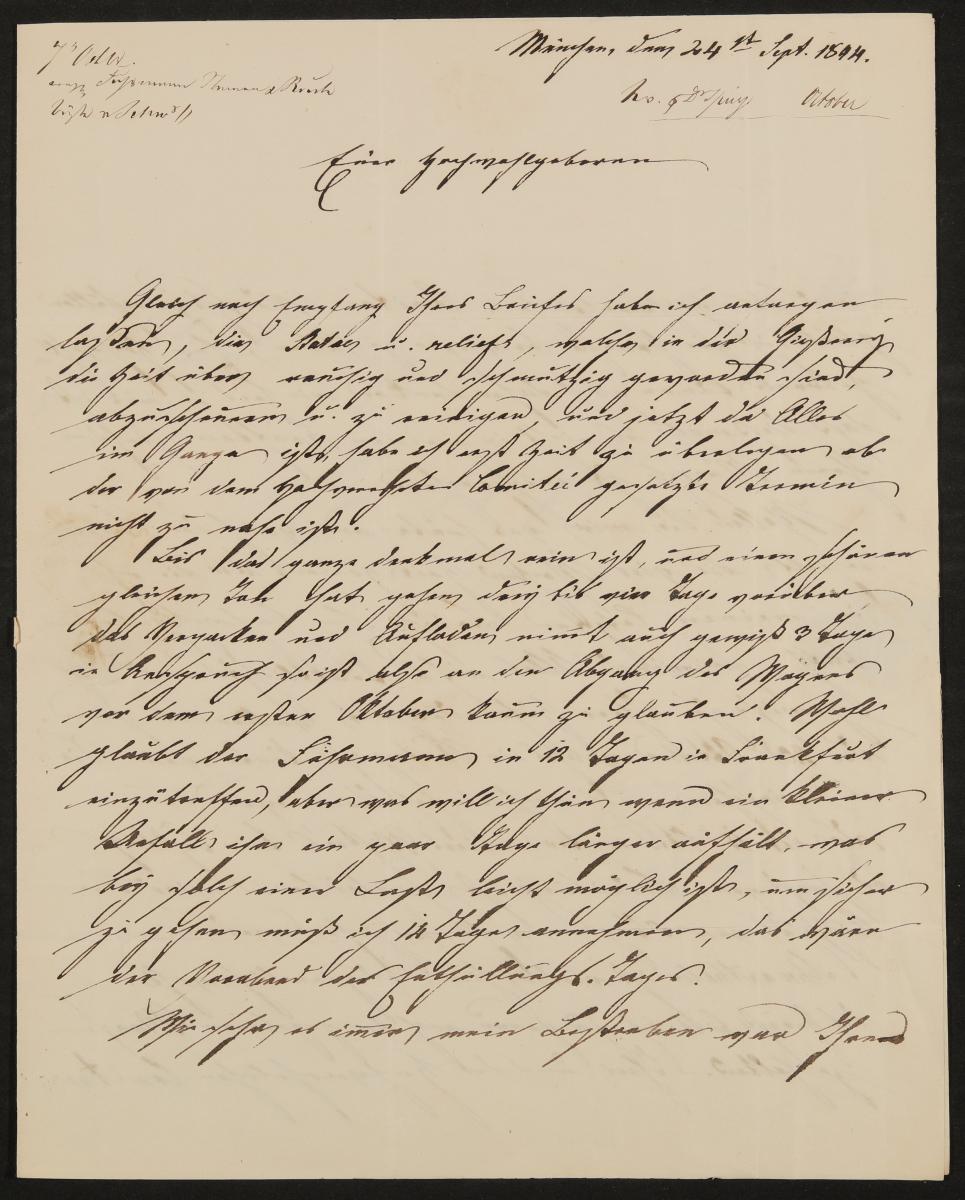 München, den 24st Sept. 1844.
October
Euer Hochwohlgeboren
Gleich nach Empfang Ihres Briefes habe ich anfangen
lassen, die Statue u. reliefs, welche in der Gießerey
die Zeit über rauchig und schmutzig geworden sind,
abzuscheuern u. zu reinigen, und jetzt da Alles
im Gange ist, habe ich erst Zeit zu überlegen ob
der von dem Hochverehrten Comitéi gesetzte Termin
nicht zu nahe ist.
Bis das ganze Denkmal rein ist, und einen schönen
gleichen Ton hat gehen drey bis vier Tage vorüber
das Verpacken und Aufladen nimt auch gewiß 3 Tage
in Anspruch so ist also an den Abgang des Wagens
vor dem ersten Oktober kaum zu glauben. Wohl
glaubt der Fuhrmann in 12 Tagen in Frankfurt
einzutreffen, aber was will ich thun wenn ein kleiner
Unfall ihn ein paar Tage länger aufhält, was
bey solch einer Last leicht möglich ist, um sicher
zu gehen muß ich 14 Tage annehmen, das wäre
der Vorabend des Enthüllungs-Tages.
Wie sehr es immer mein Bestreben war Ihren